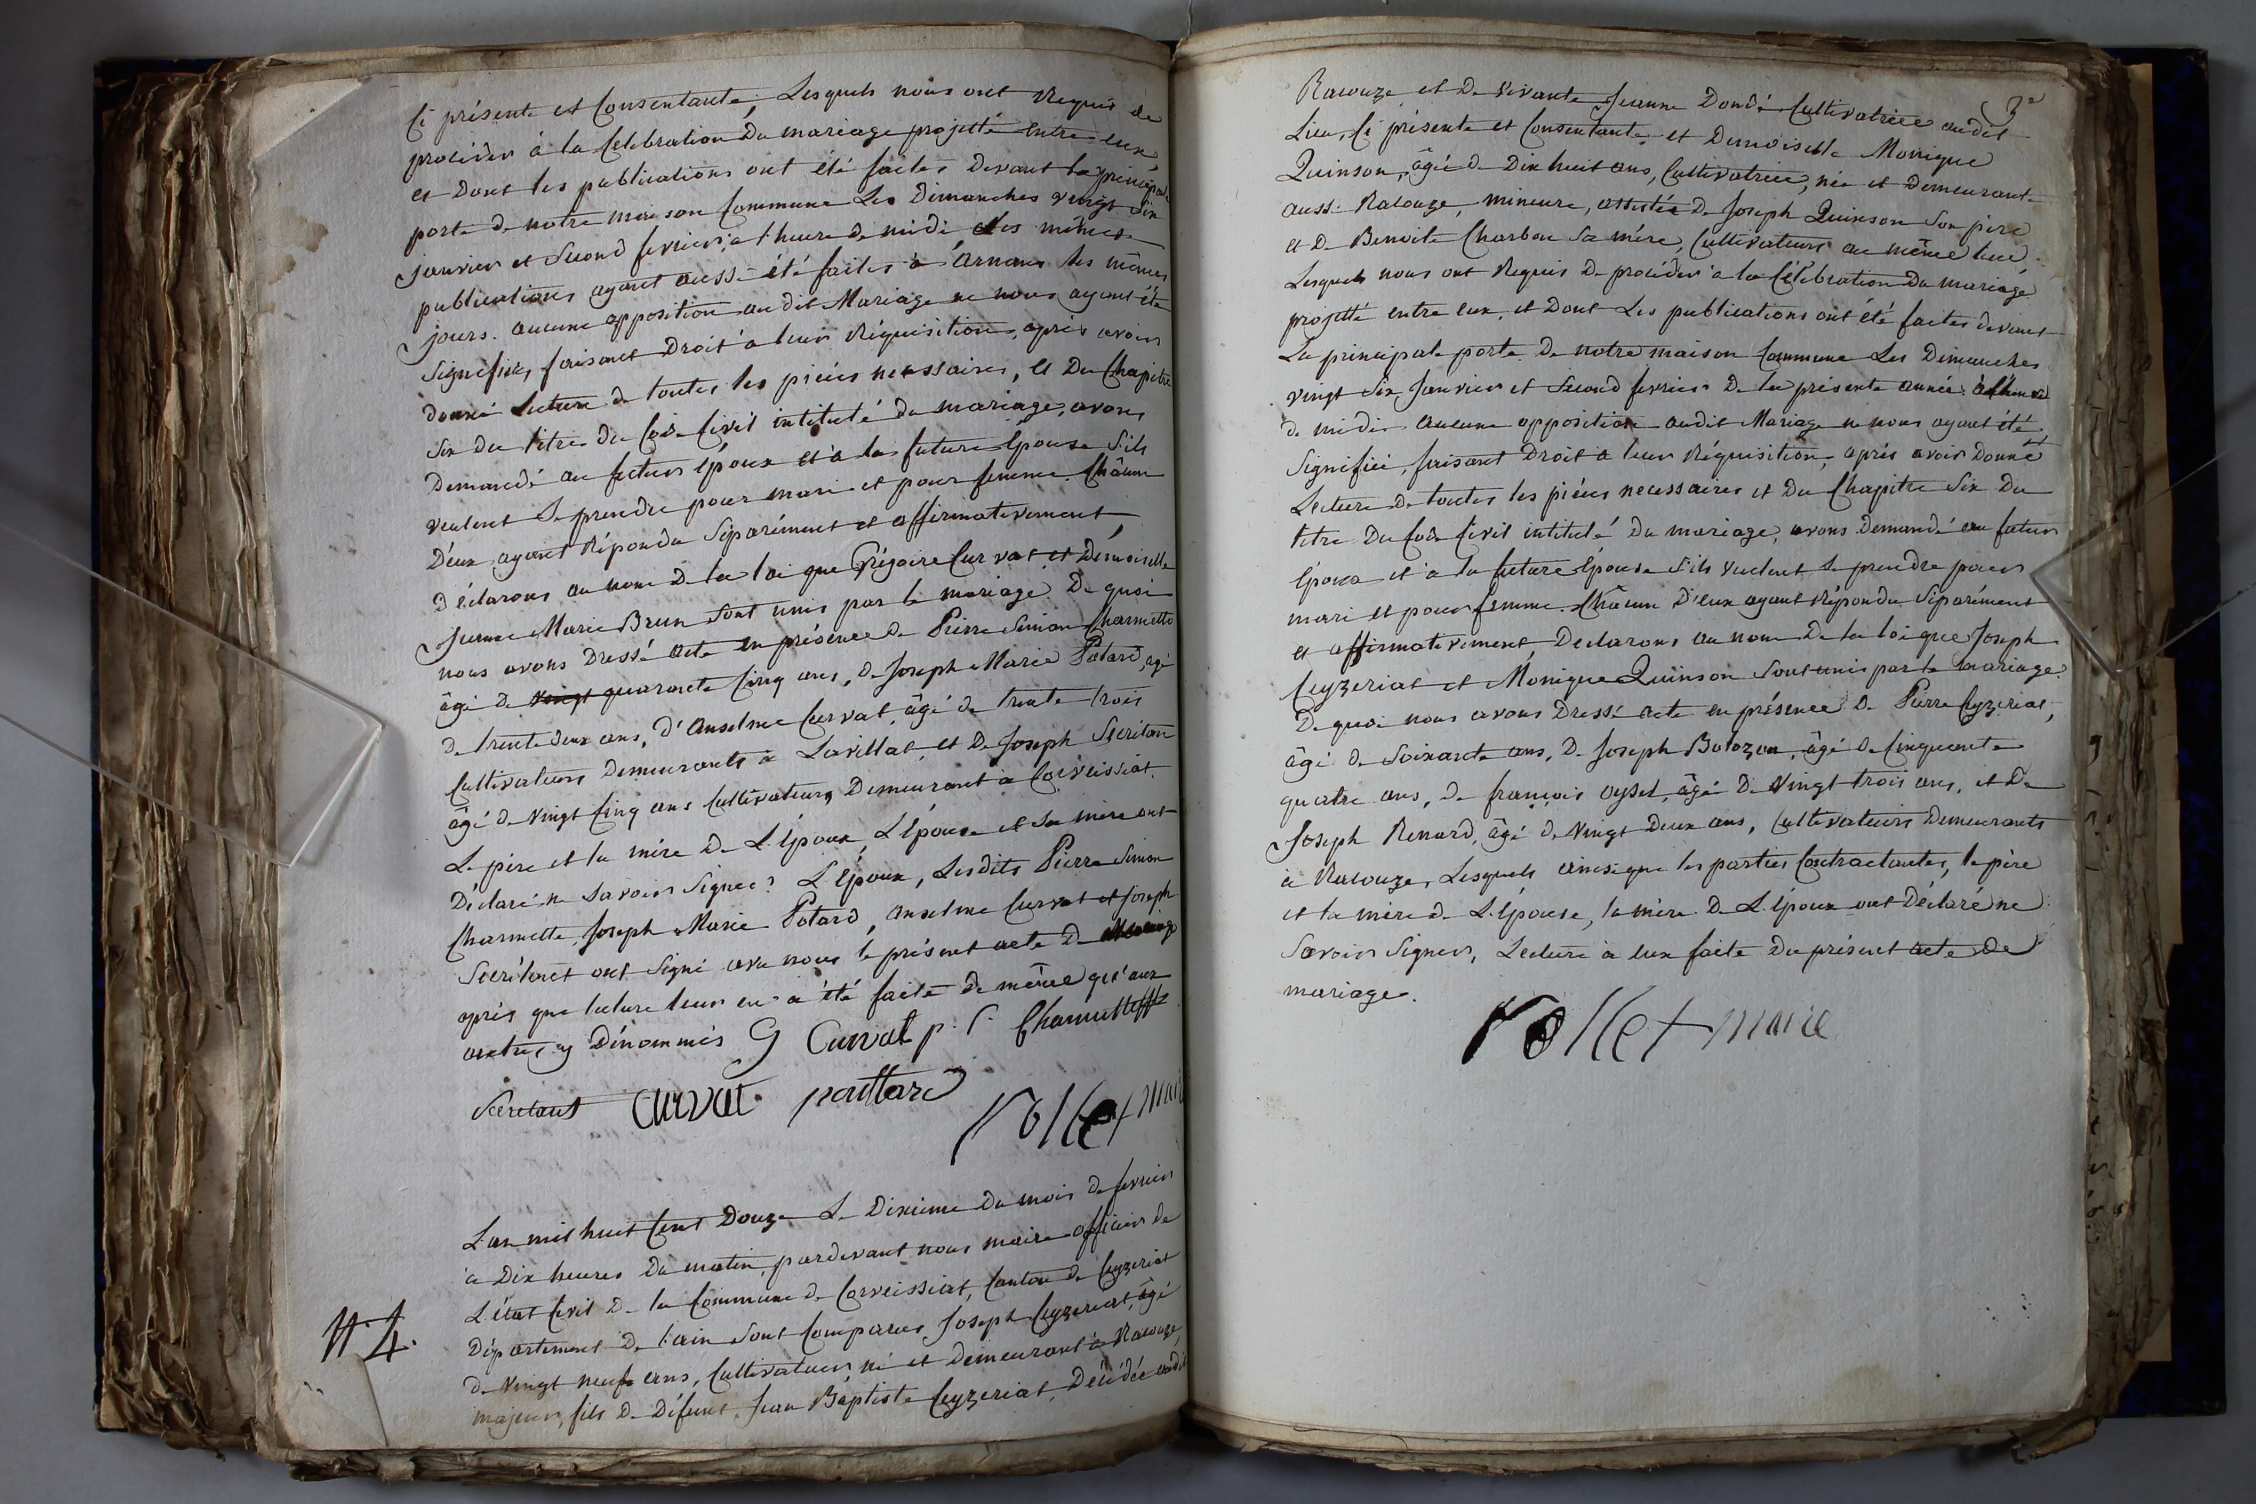 Ci présente et Consentante, Lesquels nous ont Requis de
procéder à la Célébration Du mariage projetté entre eux,
et Dont les publications ont été faites Devant la principale
porte de notre maison Commune Les Dimanches vingt Six
janvier et Second fevrier, à l'heure de midi Les mêmes
publications ayant aussi été faites à Arnans les mêmes
jours. aucune opposition au dit Mariage ne nous ayant été
Signifiée, faisant Droit à leur Réquisition, après avoir
donné Lecture de toutes les pièces necessaires, et Du Chapitre
Six du titre du Code Civil intitulé du mariage, avons
Demandé au futur époux et à la future épouse S'ils
veulent Se prendre pour mari et pour femme. Châcun
D'eux ayant Répondu Séparément et affirmativement,
déclarons au nom De la loi que Grégoire Curvat et Démoiselle
Jeanne Marie Brun Sont unis par le mariage. De quoi
nous avons Dressé acte en présence de Pierre Simon Charmette
âgé de quarante Cinq ans, de Joseph Marie Potard, agé
de trente deux ans, d'Anselme Curvat, âgé de trente trois
Cultivateurs Demeurants à Lavillat, et De Joseph Secrétan
âgé de vingt Cinq ans Cultivateurs Demeurant à Corveissiat.
Le père et la mère De L'époux, L'épouse et Sa mère ont
Déclaré ne Savoir Signer. L'époux, Lesdits Pierre Simon
Charmette, Joseph Marie Potard, Anselme Curvat et Joseph
Secrétant ont Signé avec nous le présent acte De Mariage
après que lecture leur en a été faite de même qu'aux
autres y Dénommés G Curvat p. S. Charmette
Secretant Curvat pottard
rollet maire
L'an mil huit Cent Douze Le Dixième Du mois de fevrier
à Dix heures du matin, pardevant nous maire officier de
L'état Civil De la Commune de Corveissiat, Canton de Ceyzeriat
Département De l'ain Sont Comparus Joseph Ceyzeriat, âgé
N.º 4.
de vingt neuf ans, Cultivateur né et demeurant à Racouze,
majeur, fils De Défunt Jean Baptiste Ceyzeriat Décédé audit
3e
Racouze et De vivante Jeanne Dondé Cultivatrice audit
Lieu, Ci présente et Consentante, et Demoiselle Monique
Quinson, âgée De Dix huit ans, Cultivatrice, née et Demeurante
aussi Racouze, mineure, assistée De Joseph Quinson Son père
et De Benoite Charbon Sa mère, Cultivateurs au même lieu,
Lesquels nous ont Requis De procéder à la Célébration Du mariage
projetté entre eux, et Dont Les publications ont été faites devant
La principale porte De notre maison Commune Les Dimanches
vingt Six Janvier et Second fevrier De la présente année à l'heure
de midi. aucune opposition audit Mariage ne nous ayant été
Signifiée, faisant Droit à leur Réquisition, après avoir Donné
Lecture De toutes les pièces necessaires et Du Chapitre Six Du
titre Du Code Civil intitulé Du mariage, avons Demandé au futur
époux et à la future épouse S'ils veulent Se prendre pour
mari et pour femme. Châcun D'eux ayant Répondu Séparément
et affirmativement, Declarons au nom De la loi que Joseph
Ceyzeriat et Monique Quinson Sont unis par le mariage.
De quoi nous avons Dressé acte en présence De Pierre Ceyzeriat,
âgé de Soixante ans, De Joseph Bolozon, âgé De Cinquante
quatre ans, de françois oyset, âgé De vingt trois ans, et De
Joseph Renard, âgé de Vingt Deux ans, Cultivateurs Demeurants
à Racouze, Lesquels ainsi que les parties Contractantes, le père
et la mère De L'épouse, la mère De L'époux ont Déclaré ne
Savoir Signer, Lecture à eux faite Du présent acte de
mariage.
rollet maire